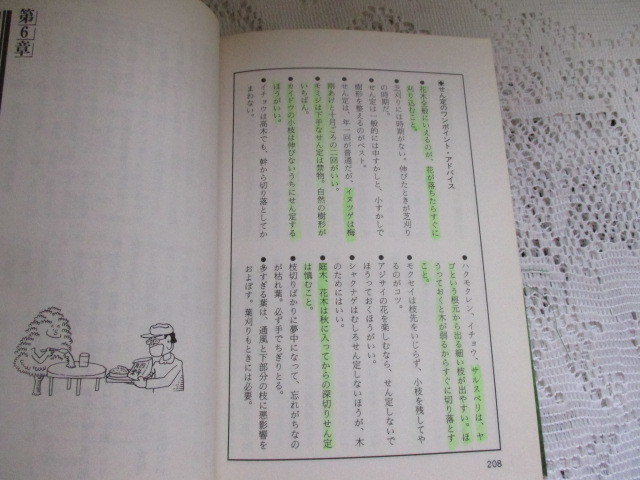 ●せん定のワンポイント・アドバイス
●花木全般にいえるのが、花が落ちたらすぐに
刈り込むこと。
●芝刈りには時期がない。伸びたときが芝刈り
の時期だ。
●せん定は一般的には中すかしと、小すかしで
樹形を整えるのがベスト。
●せん定は、年一回が普通だが、イヌツゲは梅
雨あけと十月ごろの二回がいい。
●モミジは下手なせん定は禁物。自然の樹形が
いちばん。
●カイドウの小枝は伸びないうちにせん定する
ほうがいい。
●イチョウは高木でも、幹から切り落としてか
まわない。
●ハクモクレン、イチョウ、サルスベリは、ヤ
ゴという根元から出る細い枝が出やすい。ほ
うっておくと木が弱るからすぐに切り落とす
こと。
●モクセイは枝先をいじらず、小枝を残してや
るのがコツ。
●アジサイの花を楽しむなら、せん定しないで
ほうっておくほうがいい。
●シャクナゲはむしろせん定しないほうが、木
のためにはいい。
●庭木、花木は秋に入ってからの深切りせん定
は慎むこと。
●枝切りばかりに夢中になって、忘れがちなの
が枯れ葉。必ず手でちぎりとる。
●多すぎる葉は、通風と下部分の枝に悪影響を
およぼす。葉刈りもときには必要。
208
第6章